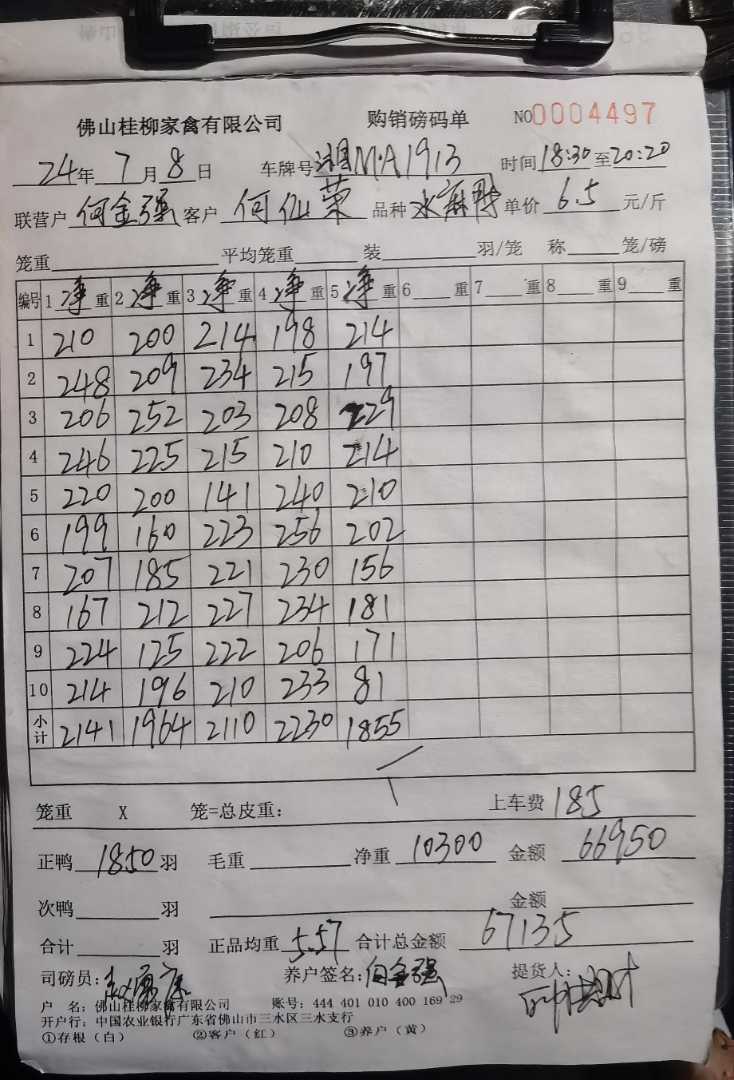 佛山桂柳家禽有限公司 购销磅码单 NO0004497
24年7月8日 车牌号湘M·A1913 时间18:30至20:20
联营户何金强 客户何仙荣 品种水麻鸭 单价6.5元/斤
笼重 平均笼重 装 羽/笼 称 笼/磅
编号 1净重 2净重 3净重 4净重 5净重 6 重 7 重 8 重 9 重
1 210 200 214 198 214
2 248 209 234 215 197
3 206 252 203 208 229
4 246 225 215 210 214
5 220 200 141 240 210
6 199 160 223 256 202
7 207 185 221 230 156
8 167 212 227 234 181
9 224 125 222 206 171
10 214 196 210 233 81
小计 2141 1964 2110 2230 1855
笼重 X 笼=总皮重: 上车费185
正鸭1850羽 毛重 净重10300 金额66950
次鸭 羽 金额
合计 羽 正品均重5.57 合计总金额67135
司磅员: 养户签名:何金强 提货人:
户 名:佛山桂柳家禽有限公司 账号:444 401 010 400 169 29
开户行:中国农业银行广东省佛山市三水区三水支行
①存根(白) ②客户(红) ③养户(黄)